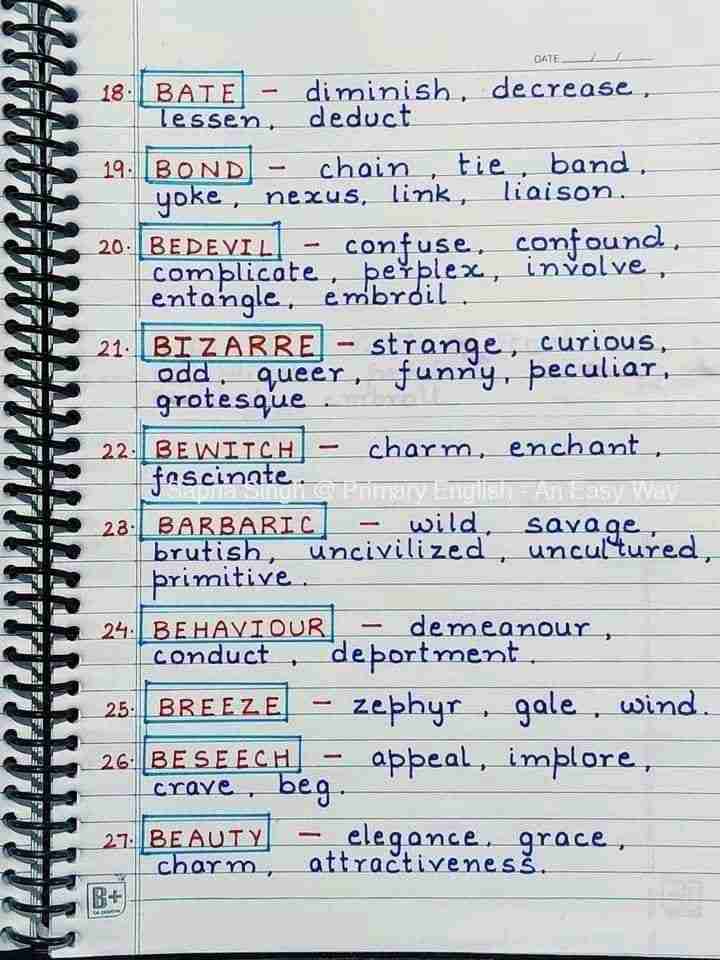 DATE __/__/__
18. BATE – diminish, decrease,
lessen, deduct
19. BOND – chain, tie, band,
yoke, nexus, link, liaison.
20. BEDEVIL – confuse, confound,
complicate, perplex, involve,
entangle, embroil.
21. BIZARRE – strange, curious,
odd, queer, funny, peculiar,
grotesque.
22. BEWITCH – charm, enchant,
fascinate.
Sapna Singh @ Primary English - An Easy Way
23. BARBARIC – wild, savage,
brutish, uncivilized, uncultured,
primitive.
24. BEHAVIOUR – demeanour,
conduct, deportment.
25. BREEZE – zephyr, gale, wind.
26. BESEECH – appeal, implore,
crave, beg.
27. BEAUTY – elegance, grace,
charm, attractiveness.
B+